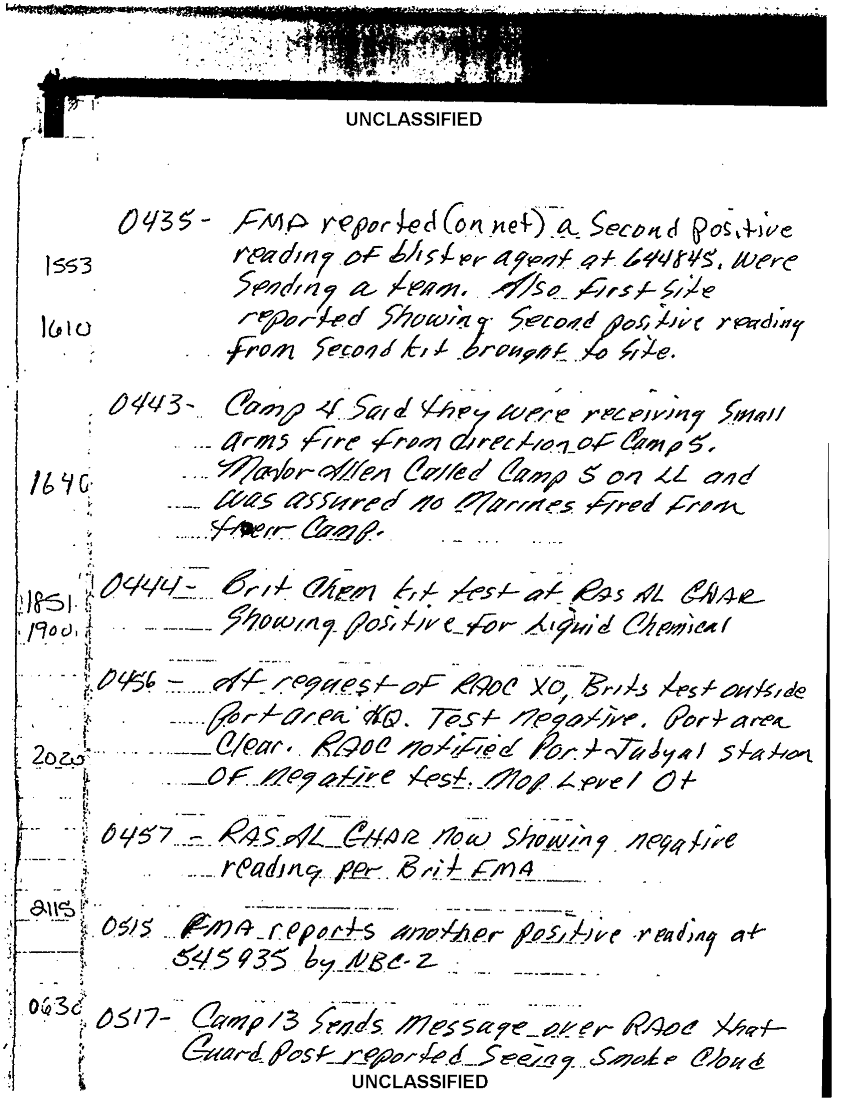 UNCLASSIFIED
0435- FMA reported (on net) a Second positive
1553 reading of blister agent at 644845. were
Sending a team. Also first site
1610 reported Showing Second positive reading
from Second kit brought to site.
0443- Camp 4 Said they were receiving Small
arms fire from direction of Camp 5.
1640 Major Allen Called Camp 5 on LL and
was assured no Marines fired from
their Camp.
0444- Brit Chem kit test at RAS AL GHAR
1851
1900 Showing Positive for Liquid Chemical
0456- At request of RAOC XO, Brits test outside
Port area HQ. Test negative. Port area
2020 Clear. RAOC notified Port Jubyal station
OF negative test. Mop Level 0+
0457- RAS AL GHAR now Showing negative
reading per Brit FMA
2115
0515 FMA reports another positive reading at
545935 by NBC-2
0630
0517- Camp 13 Sends message over RAOC that
Guard Post reported Seeing Smoke Cloud
UNCLASSIFIED